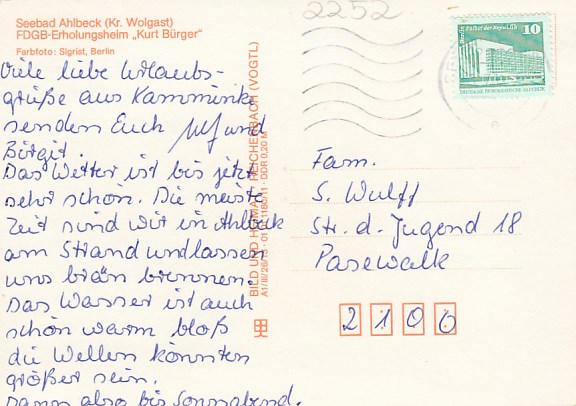 2252
Seebad Ahlbeck (Kr. Wolgast)
FDGB-Erholungsheim „Kurt Bürger"
Farbfoto: Sigrist, Berlin
Viele liebe Urlaubs-
grüße aus Kamminke
senden Euch und
Birgit.
Das Wetter ist bis jetzt
sehr schön. Die meiste
Zeit sind wir in Ahlbeck
am Strand und lassen
uns braun brennen.
Das Wasser ist auch
schön warm bloß
die Wellen könnten
größer sein.
Dann also bis Sonnabend.
BILD UND HEIMAT REICHENBACH (VOGTL)
A1/III/26/13 DDR 0,20 M
10
Palast der Republik
DEUTSCHE DEMOKRATISCHE REPUBLIK
Fam.
S. Wulff
Str. d. Jugend 18
Pasewalk
2100